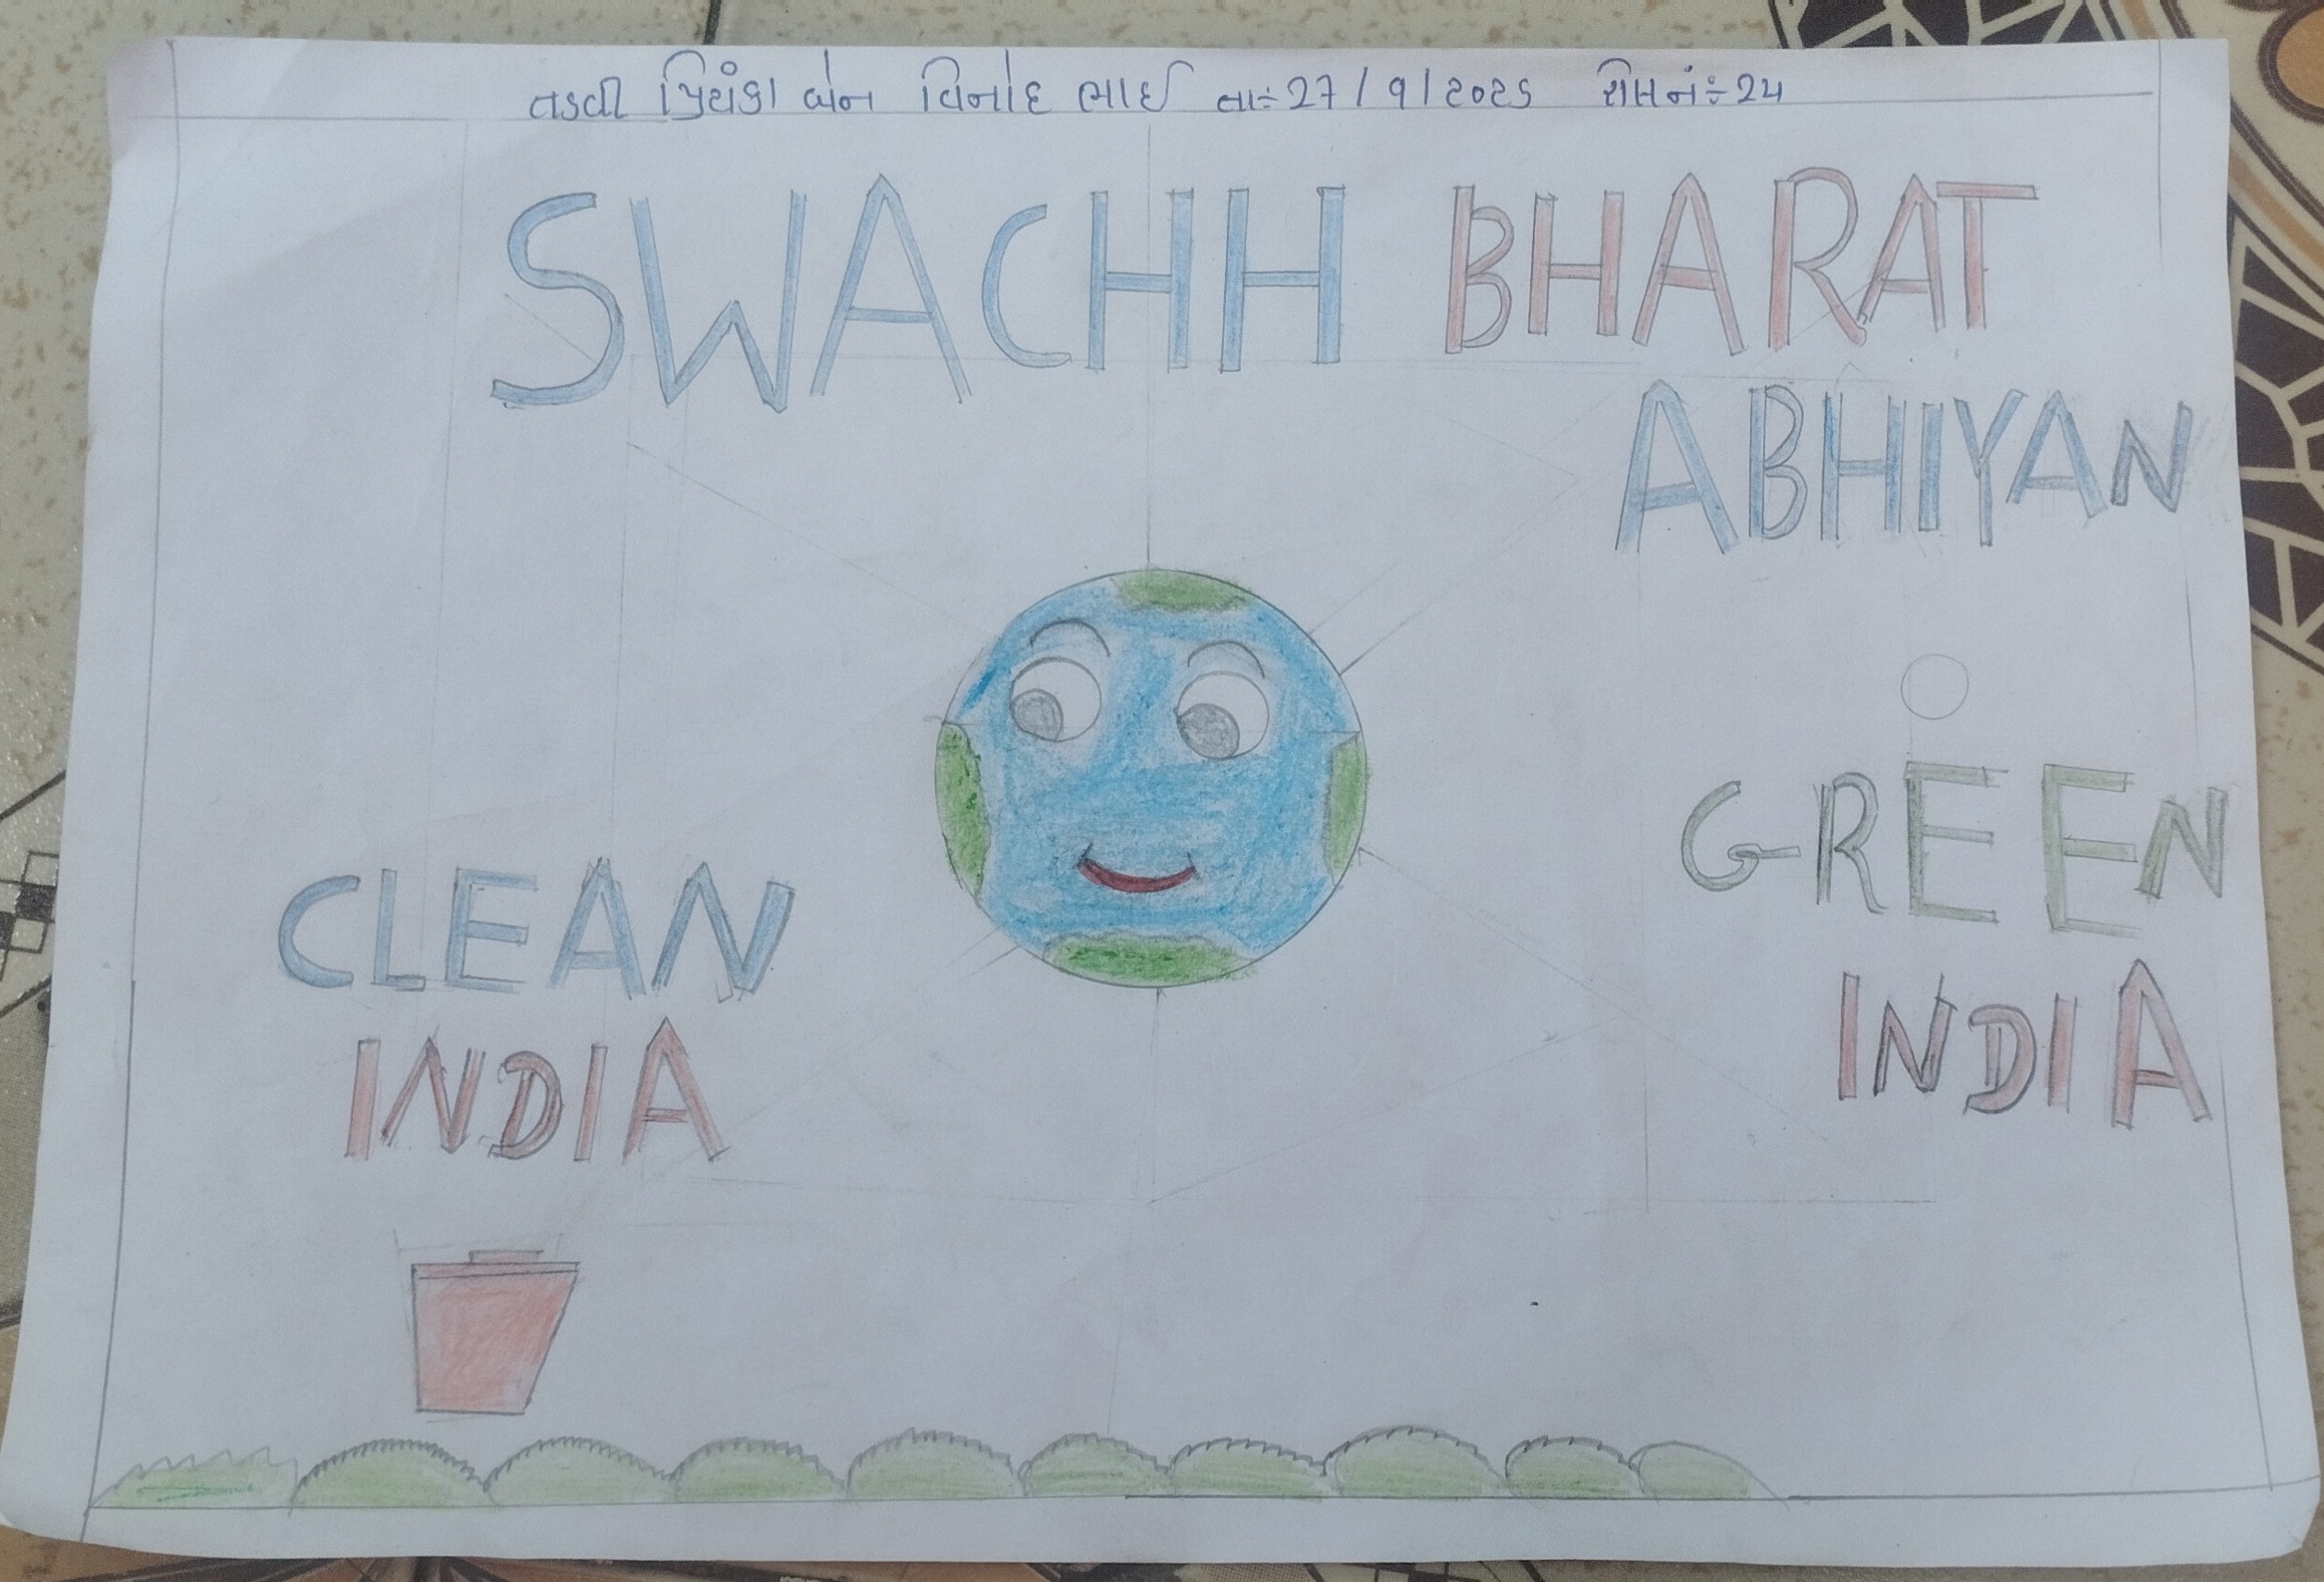 તડવી પ્રિયંકા બેન વિનોદ ભાઈ તાઃ 27/9/૨૦૨૬ રોલ નંઃ 24
SWACHH BHARAT
ABHIYAN
CLEAN
INDIA
GREEN
INDIA